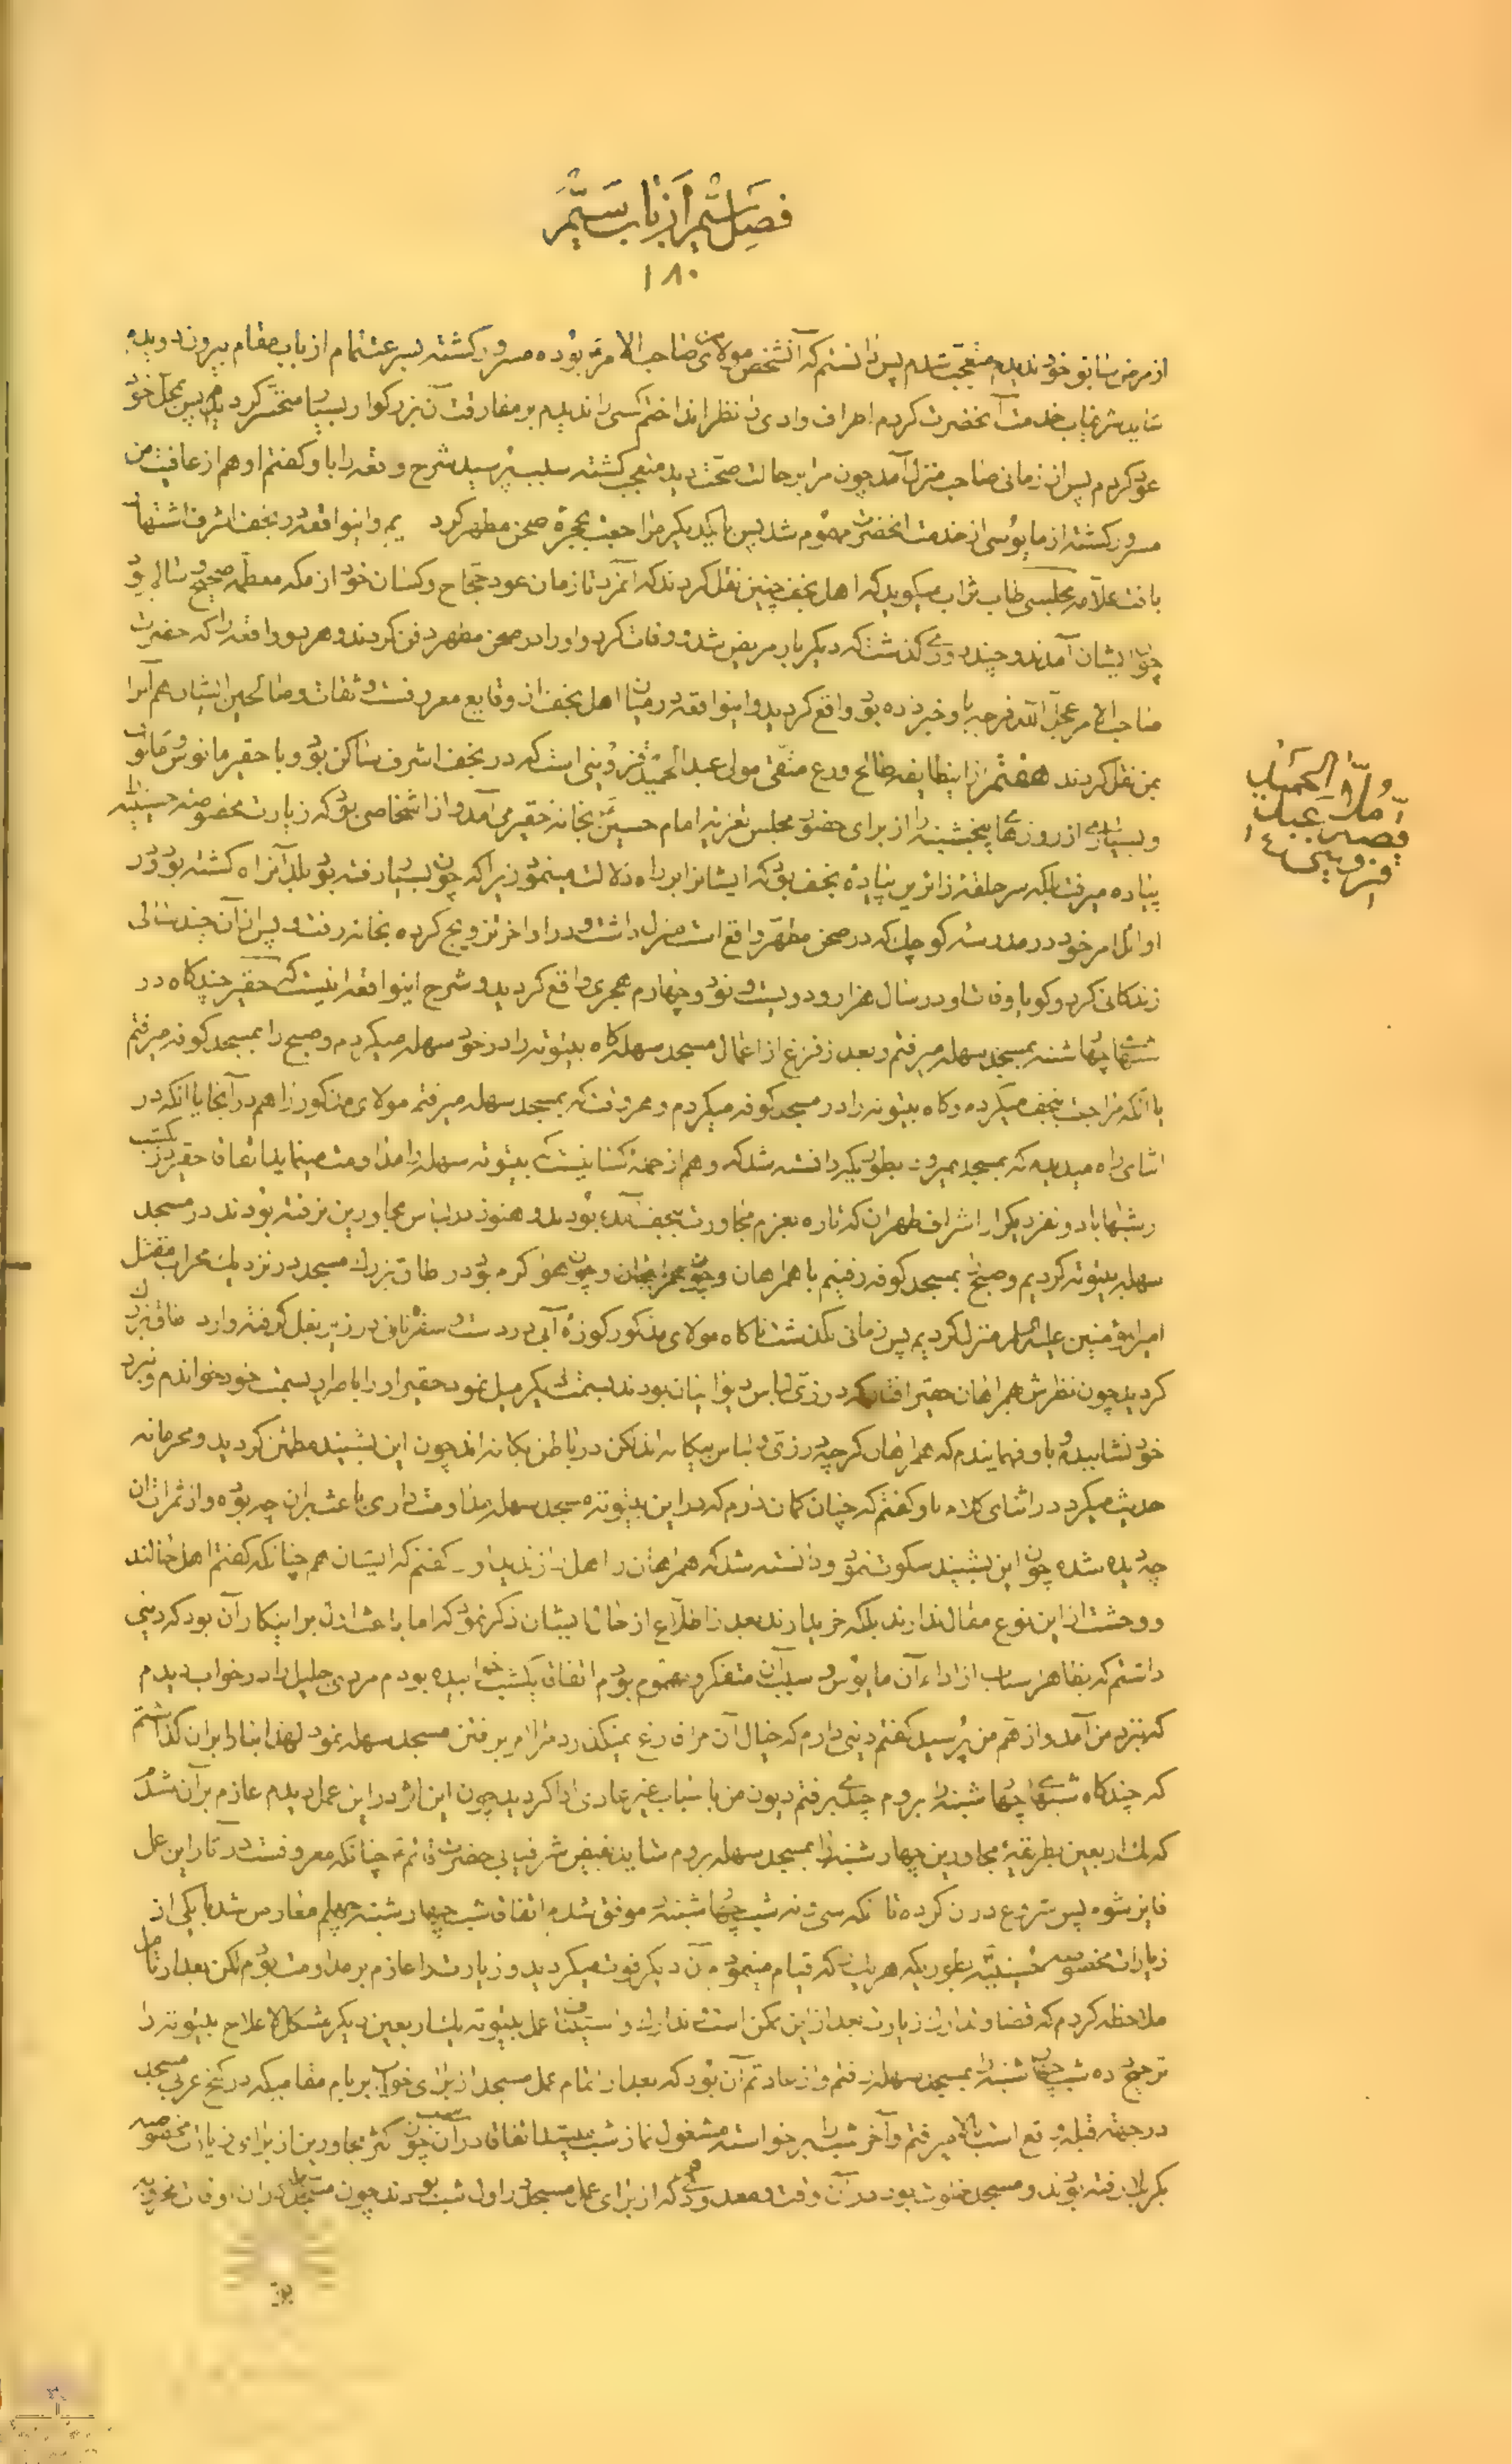 فصل ششم از باب ستم
۱۸۰
از مرض سابق خود ندیدم متعجب شدم پس دانستم که آنشخص مولای من صاحب الامر بوده مسرور کشته بسرعت تمام از باب مقام بیرون دویدم
شاید شرفیاب خدمت آنحضرت کردم اطراف وادی را نظر انداختم کسی را ندیدم بر مفارقت آن بزرکوار بسیار متحسر کردیدم پس بمحل خود
عود کردم پس از زمانی صاحب منزل آمد چون مرا بر حالت صحت دید متعجب کشته سبب پرسید شرح واقعه را باو کفتم او هم از عافیت من
مسرور کشته از مایوسی از خدمت انحضرت مهموم شد پس با یکدیکر مراجعت بحجرهٔ صحن مطهر کردیم و اینواقعه در نجف اشرف اشتهار
یافت علامه مجلسی طاب ثراه میکوید که اهل نجف چنین نقل کردند که انمرد تا زمان عود حجاج و کسان خود از مکه معظمه صحیح و سالم بود
چون ایشان آمدند و چند روزی کذشت که دیکر بار مریض شده وفات کرد و او را در صحن مطهر دفن کردند و هر دو واقعه را که حضرت
صاحب الامر عجل الله فرجه باو خبر داده بود واقع کردید و اینواقعه در میان اهل نجف از وقایع معروفست و ثقات و صالحین ایشان هم آنرا
بمن نقل کردند هفتم از اینطایفه صالح ورع متقی مولی عبد الحمید قزوینی است که در نجف اشرف ساکن بود و با حقیر مانوس و مالوف
و بسیاری از روزهای پنجشنبه را از برای حضور مجلس تعزیه امام حسین بخانه حقیر می آمد و از اشخاصی بود که زیارت مخصوصه حسینیه
پیاده میرفت بلکه سر حلقهٔ زائرین پیاده نجف بود که ایشانرا بر راه دلالت مینمود زیرا که چون بسیار رفته بود بلد آنراه کشته بود در
اوائل امر خود در مدرسه کوچک که در صحن مطهر واقع است منزل داشت و در اواخر تزویج کرده بخانه رفت و پس از آن چند سالی
زندکانی کرد و کویا وفات او در سال هزار و دویست و نود و چهارم هجری واقع کردید و شرح اینواقعه اینست که حقیر چند کاه در
شبهای چهارشنبه بمسجد سهله میرفتم و بعد از فراغ از اعمال مسجد سهله کاه بیتوته را در خود سهله میکردم و صبح را بمسجد کوفه میرفتم
یا آنکه مراجعت بنجف میکردم و کاه بیتوته را در مسجد کوفه میکردم و هر وقت که بمسجد سهله میرفتم مولای مذکور را هم در آنجا یا انکه در
اثنای راه میدیدم که بمسجد میرود بطوریکه دانسته شد که او هم از جمله کسانیست که بیتوته سهله را مداومت مینماید اتفاقا حقیر در یکشب
از شبها با دو نفر دیکر از اشراف طهران که تازه بعزم مجاورت بنجف آمده بودند و هنوز در لباس مجاورین نرفته بودند در مسجد
سهله بیتوته کردیم و صبح بمسجد کوفه رفتیم با همراهان و چون هوا کرم بود در طاق بزرک مسجد در نزدیک محراب مقتل
امیرالمؤمنین علیه السلام منزل کردیم پس زمانی نکذشت ناکاه مولای مذکور کوزهٔ آبی در دست و سفره نان در زیر بغل کرفته وارد طاق بزرک
کردید چون نظرش بهمراهان حقیر افتاد که در زی لباس دیوانیان بودند بسمت دیکر میل نمود حقیر او را باصرار بسمت خود خواندم و نزد
خود نشانیدم و باو فهمایندم که همراهان کرچه در زی و لباس بیکانه اند لکن در باطن یکانه اند چون این بشنید مطمئن کردید و محرمانه
حدیث میکرد در اثنای کلام باو کفتم که چنان کمان ندارم که در این بیتوته مسجد سهله مداومت داری باعث بر ان چه بوده و از ثمرات ان
چه دیده شده چون این بشنید سکوت نمود و دانسته شد که همراهان را اهل راز ندید او را کفتم که ایشان هم چنانکه کفتم اهل حالند
و وحشت از این نوع مقال ندارند بلکه خریدارند بعد از اطلاع از حال ایشان ذکر نمود که اما باعث اول بر اینکار آن بود که دینی
داشتم که بظاهر اسباب از اداء آن مایوس و بسبب آن متفکر و مهموم بودم اتفاقا یکشب خوابیده بودم مردی جلیل را در خواب دیدم
که نزد من آمد و از هم من پرسید کفتم دینی دارم که خیال آن مرا فارغ نمیکذارد مرا امر برفتن مسجد سهله نمود لهذا بنا را بر ان کذاشتم
که چند کاه شبهای چهارشنبه را بروم چندی برفتم دیون من باسباب غیر عادی ادا کردید چون این اثر در این عمل دیدم عازم بر آن شدم
که یک اربعین بطریقهٔ مجاورین چهارشنبه را بمسجد سهله بروم شاید بفیض شرفیابی حضرت قائم چنانکه معروفست در آثار این عمل
فایز شوم پس شروع در ان کرده تا آنکه سی و نه شب چهارشنبه موفق شدم اتفاقا شب چهارشنبه چهلم معارض شد با یکی از
زیارات مخصوصه حسینیه بطوریکه هر یک را که قیام مینمودم آن دیکر فوت میکردید و زیارت را عازم بر مداومت بودم لکن بعد از تامل
ملاحظه کردم که قضا و تدارک زیارت بعد از این ممکن است تدارک و استیناف عمل بیتوته یک اربعین دیکر مشکل لا علاج بیتوته را
ترجیح داده شب چهارشنبه را بمسجد سهله رفتم و از عادتم آن بود که بعد از اتمام عمل مسجد از برای خواب بر بام مقامیکه در کنج غربی مسجد
در جهت قبله واقع است بالا میرفتم و آخر شب را برخواسته مشغول نماز شب میشدم اتفاقا در آن شب چون اکثر مجاورین از برای زیارت مخصوصه
بکربلا رفته بودند و مسجد خلوت بود در آن وقت معدودی که از برای عمل مسجد در اول شب بودند چون
ملا عبد الحمید
قصه
قزوینی